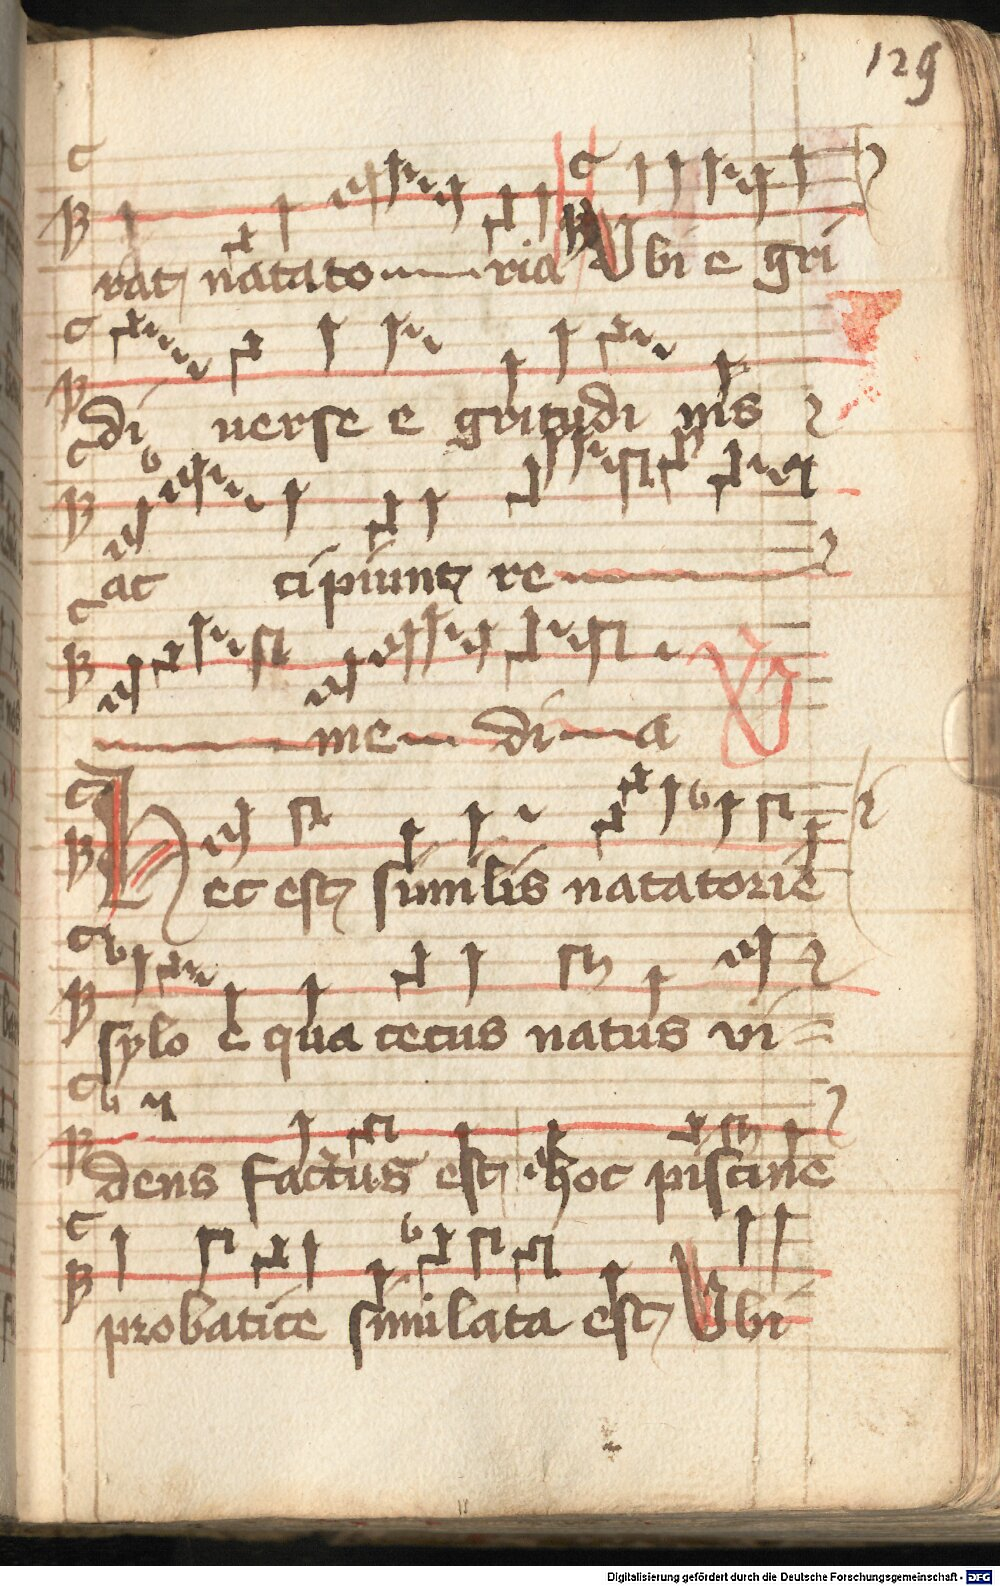 129
rat natato ria Ubi e gri
di uerse e gritudi nis
ac cipiunt re
me di a
Hec est similis natatorie
sylo e qua cecus natus vi
dens factus est hoc piscine
probatice similata est Ubi
Digitalisierung gefördert durch die Deutsche Forschungsgemeinschaft - DFG